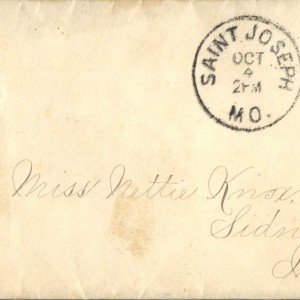 SAINT JOSEPH
OCT
4
2PM
MO.
Miss Nettie Knox.
Sidn